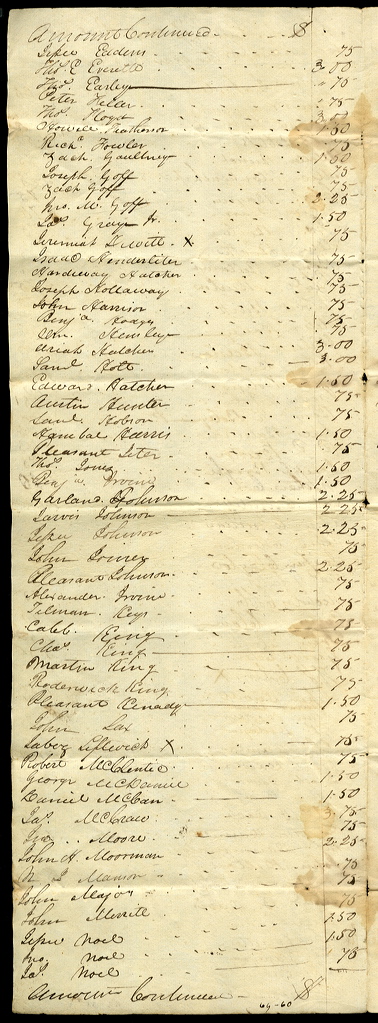 Amount Continued $
Jesse Eadens 75
Thos. E Everett 3.00
Thos. Earley 75
Peter Feller 75
Thos. Floyd 3.00
Howell 1.50
Richd. Fowler 75
Zach. Gaultney 1.50
Joseph Goff 75
Zach Goff 75
Jno. M. Goff 2.25
Jas. Gray Jr. 1.50
Jeremiah Hewitt X 75
Isaac Henderliter 75
Hardiway Hatcher 75
Joseph Hollaway 75
John Harrison 75
Benja. 75
Wm. Hensley 75
Uriah Hatcher 3.00
Saml Holt 3.00
Edward Hatcher 1.50
Austin Hunter 75
Saml. Hobson 75
Hanibal Harris 1.50
Pleasant Jeter 75
Thos. Jones 1.50
Benja. Irvine 1.50
Garland Johnson 2.25
Jarvis Johnson 2.25
Jesse Johnson 2.25
John 75
Pleasant Johnson 2.25
Alexander Irvine 75
Tilman Keys 75
Caleb King 75
Chas. King 75
Martin King 75
Roderwick King 75
Pleasant Kenady 1.50
John Lax 75
Laboy Leftwich X 75
Robert McClentic 75
George McDaniel 1.50
Daniel McCan 1.50
Jas. McCraw 3.75
Jno. Moore 75
John H. Moorman 2.25
Manson 75
John Major 75
John Merritt 75
Jesse Noel 1.50
Jno. Noel 1.50
Jas. Noel 75
Amount Continued $
64-60